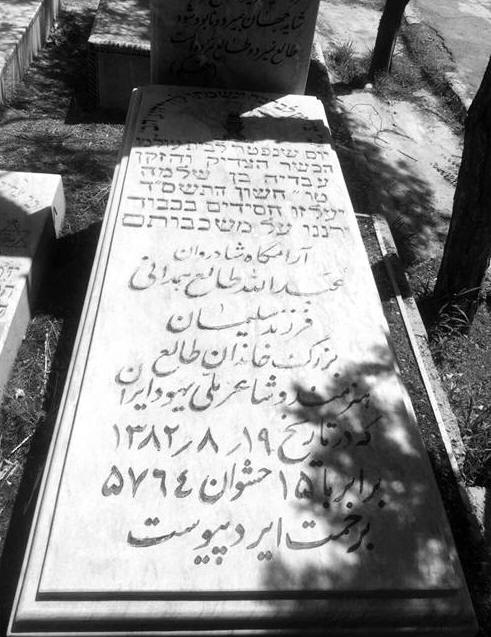 شاید جهان بمیرد و نابود شود
طالع نمیرد و طالع نمرده است
יום שנפטר לבית עולמו
הכשר הצדיק והזקן
עבדיה בן שלמה
טו״ חשון התשס״ד
יעלזו חסידים בכבוד
ירננו על משכבותם
آرامگاه شادروان
عبدالله طالع همدانی
فرزند سلیمان
بزرگ خاندان طالع
هنرمند و شاعر ملی یهود ایران
که در تاریخ ۱۹٫ ۸٫ ۱۳۸۲
برابر با ۱۵ حشوان ۵۷۶٤
برحمت ایزد پیوست